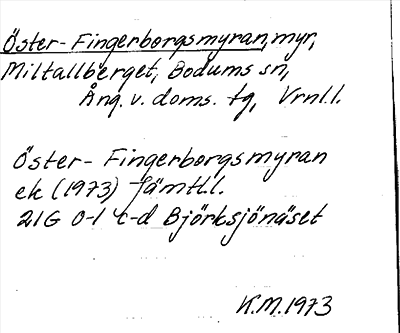 Öster-Fingerborgsmyran, myr,
Miltallberget, Bodums sn,
Ång. v. doms. tg, Vrnl.l.
Öster-Fingerborgsmyran
ek (1973) Jämtl.l.
21G 0-1 c-d Björksjönäset
K.M.1973